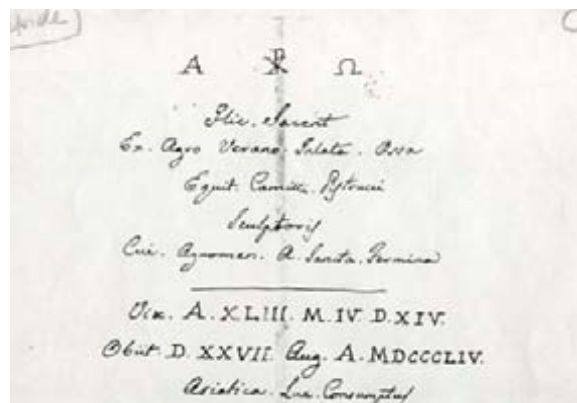 A ☧ Ω
Hic. Jacent
Ex. Agro Verano. Inlata. Ossa
Equit. Camilli. Pistrucci
Sculptoris
Cui. Agnomen. A. Sancta. Firmina
Vix. A. XLIII. M. IV. D. XIV.
Obiit. D. XXVII. Aug. A. MDCCCLIV.
Asiatica. Lue. Consumptus